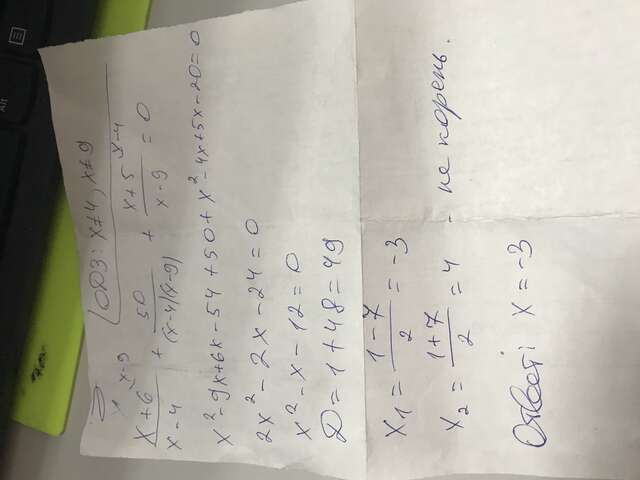 ОДЗ: x≠4, x≠9
x+6 / x-4 + 50 / (x-4)(x-9) + x+5 / x-9 = 0
x-9
x-4
x²-9x+6x-54+50+x²-4x+5x-20=0
2x²-2x-24=0
x²-x-12=0
D=1+48=49
x₁ = 1-7 / 2 = -3
x₂ = 1+7 / 2 = 4 - не корень.
Ответ: x=-3
Alt